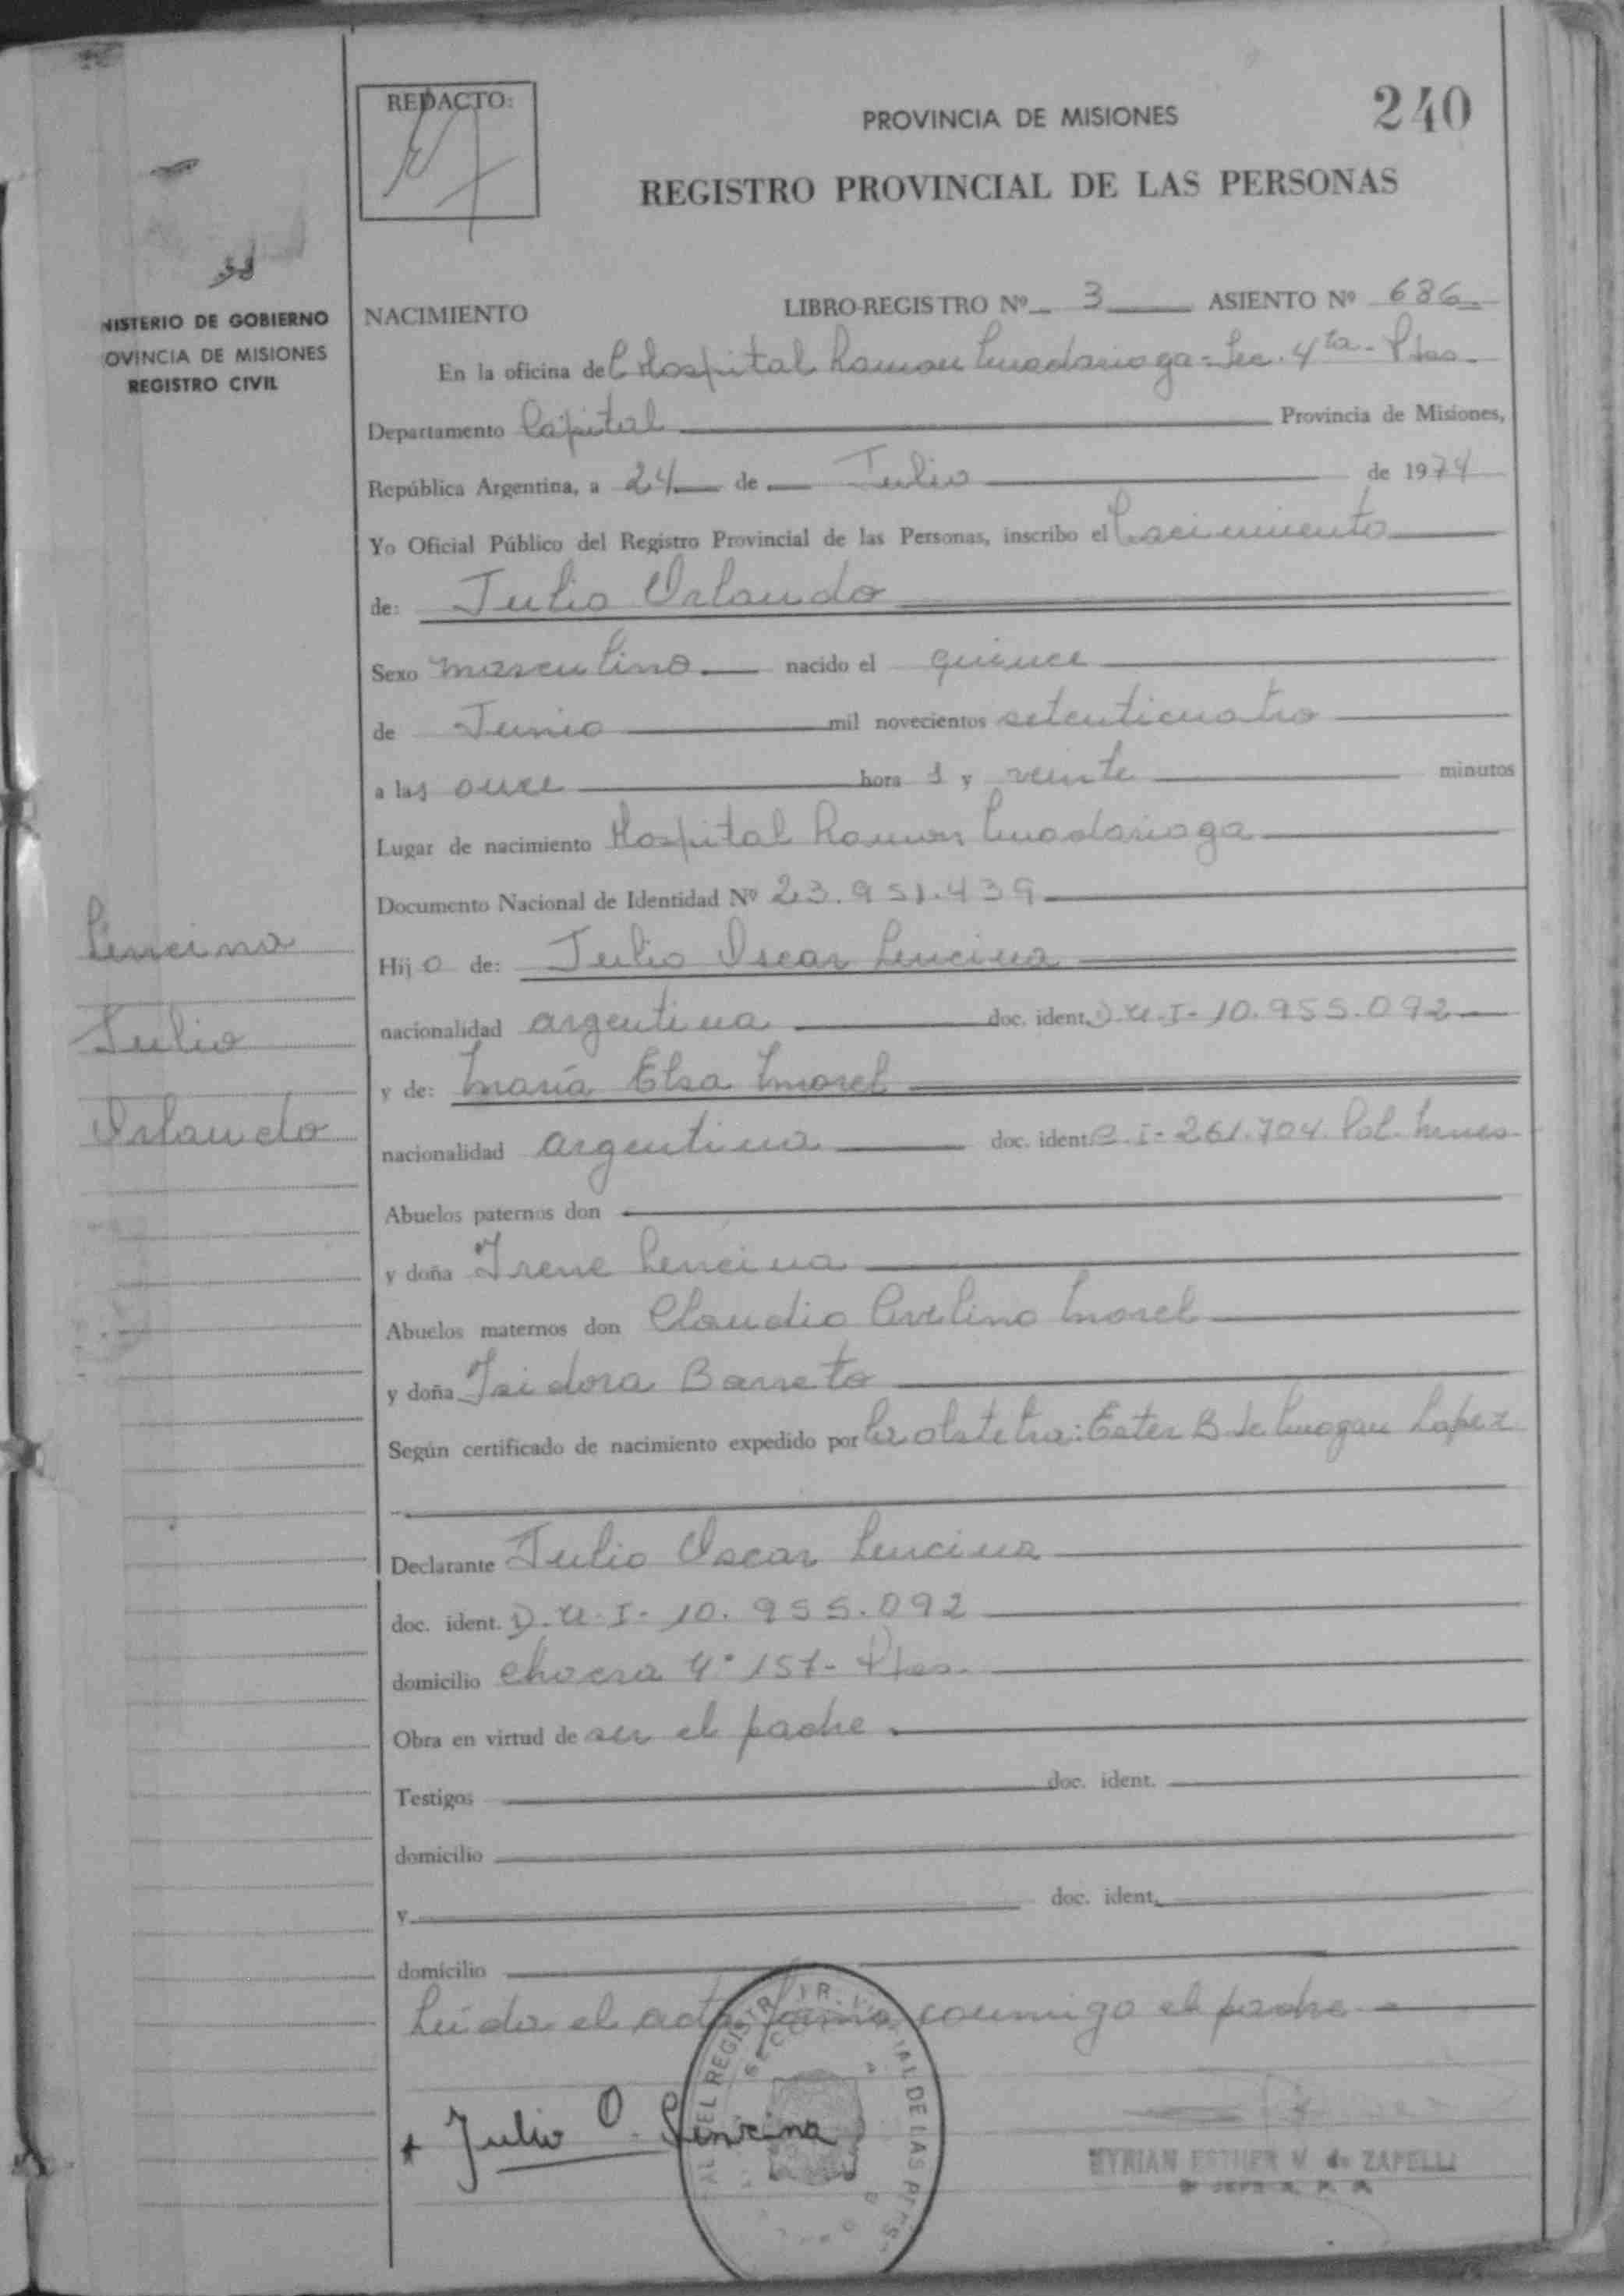 REDACTO:
PROVINCIA DE MISIONES
240
REGISTRO PROVINCIAL DE LAS PERSONAS
NISTERIO DE GOBIERNO
OVINCIA DE MISIONES
REGISTRO CIVIL
NACIMIENTO LIBRO-REGISTRO Nº 3 ASIENTO Nº 686
En la oficina del Hospital Ramon Madariaga - Sec. 4ta - Pdas.
Departamento Capital Provincia de Misiones,
República Argentina, a 24 de Julio de 1974
Yo Oficial Público del Registro Provincial de las Personas, inscribo el Nacimiento
de: Julio Orlando
Sexo masculino nacido el quince
de Junio mil novecientos setenticuatro
a las once hora s y veinte minutos
Lugar de nacimiento Hospital Ramon Madariaga
Documento Nacional de Identidad Nº 23.951.439
Hijo de: Julio Oscar Lencina
nacionalidad argentina doc. ident. D.N.I- 10.955.092
y de: María Elsa Morel
nacionalidad argentina doc. ident. C.I- 261.704 Pol. Mnes.
Abuelos paternos don
y doña Irene Lencina
Abuelos maternos don Claudio Avelino Morel
y doña Isidora Barreto
Según certificado de nacimiento expedido por la obstetra: Ester B de Lopez
Declarante Julio Oscar Lencina
doc. ident. D.N.I- 10.955.092
domicilio chacra Nº 157- Pdas.
Obra en virtud de ser el padre.
Testigos doc. ident.
domicilio
y doc. ident.
domicilio
Leída el acta firma conmigo el padre
Julio O. Lencina
MYRIAN ESTHER V. de ZAPELLI
Lencina
Julio
Orlando